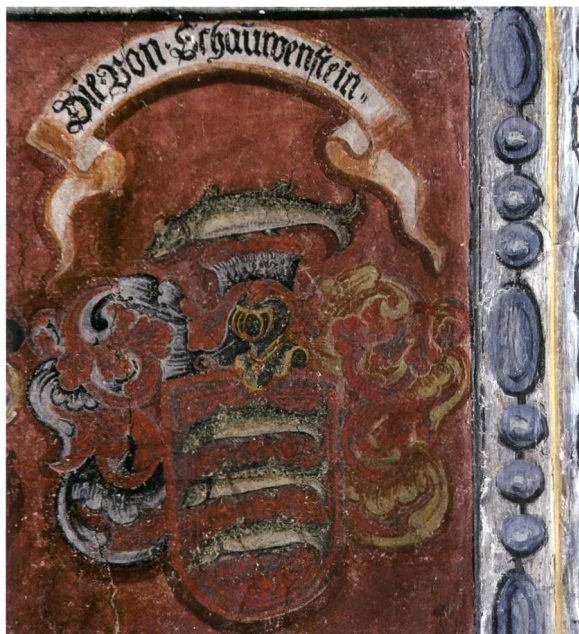 Die · Von · Schauwenstein ·,